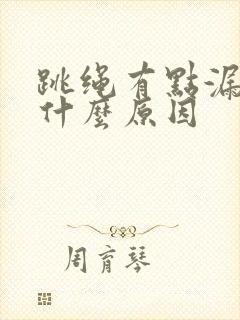 跳绳有點漏
什麼原因
周育琴